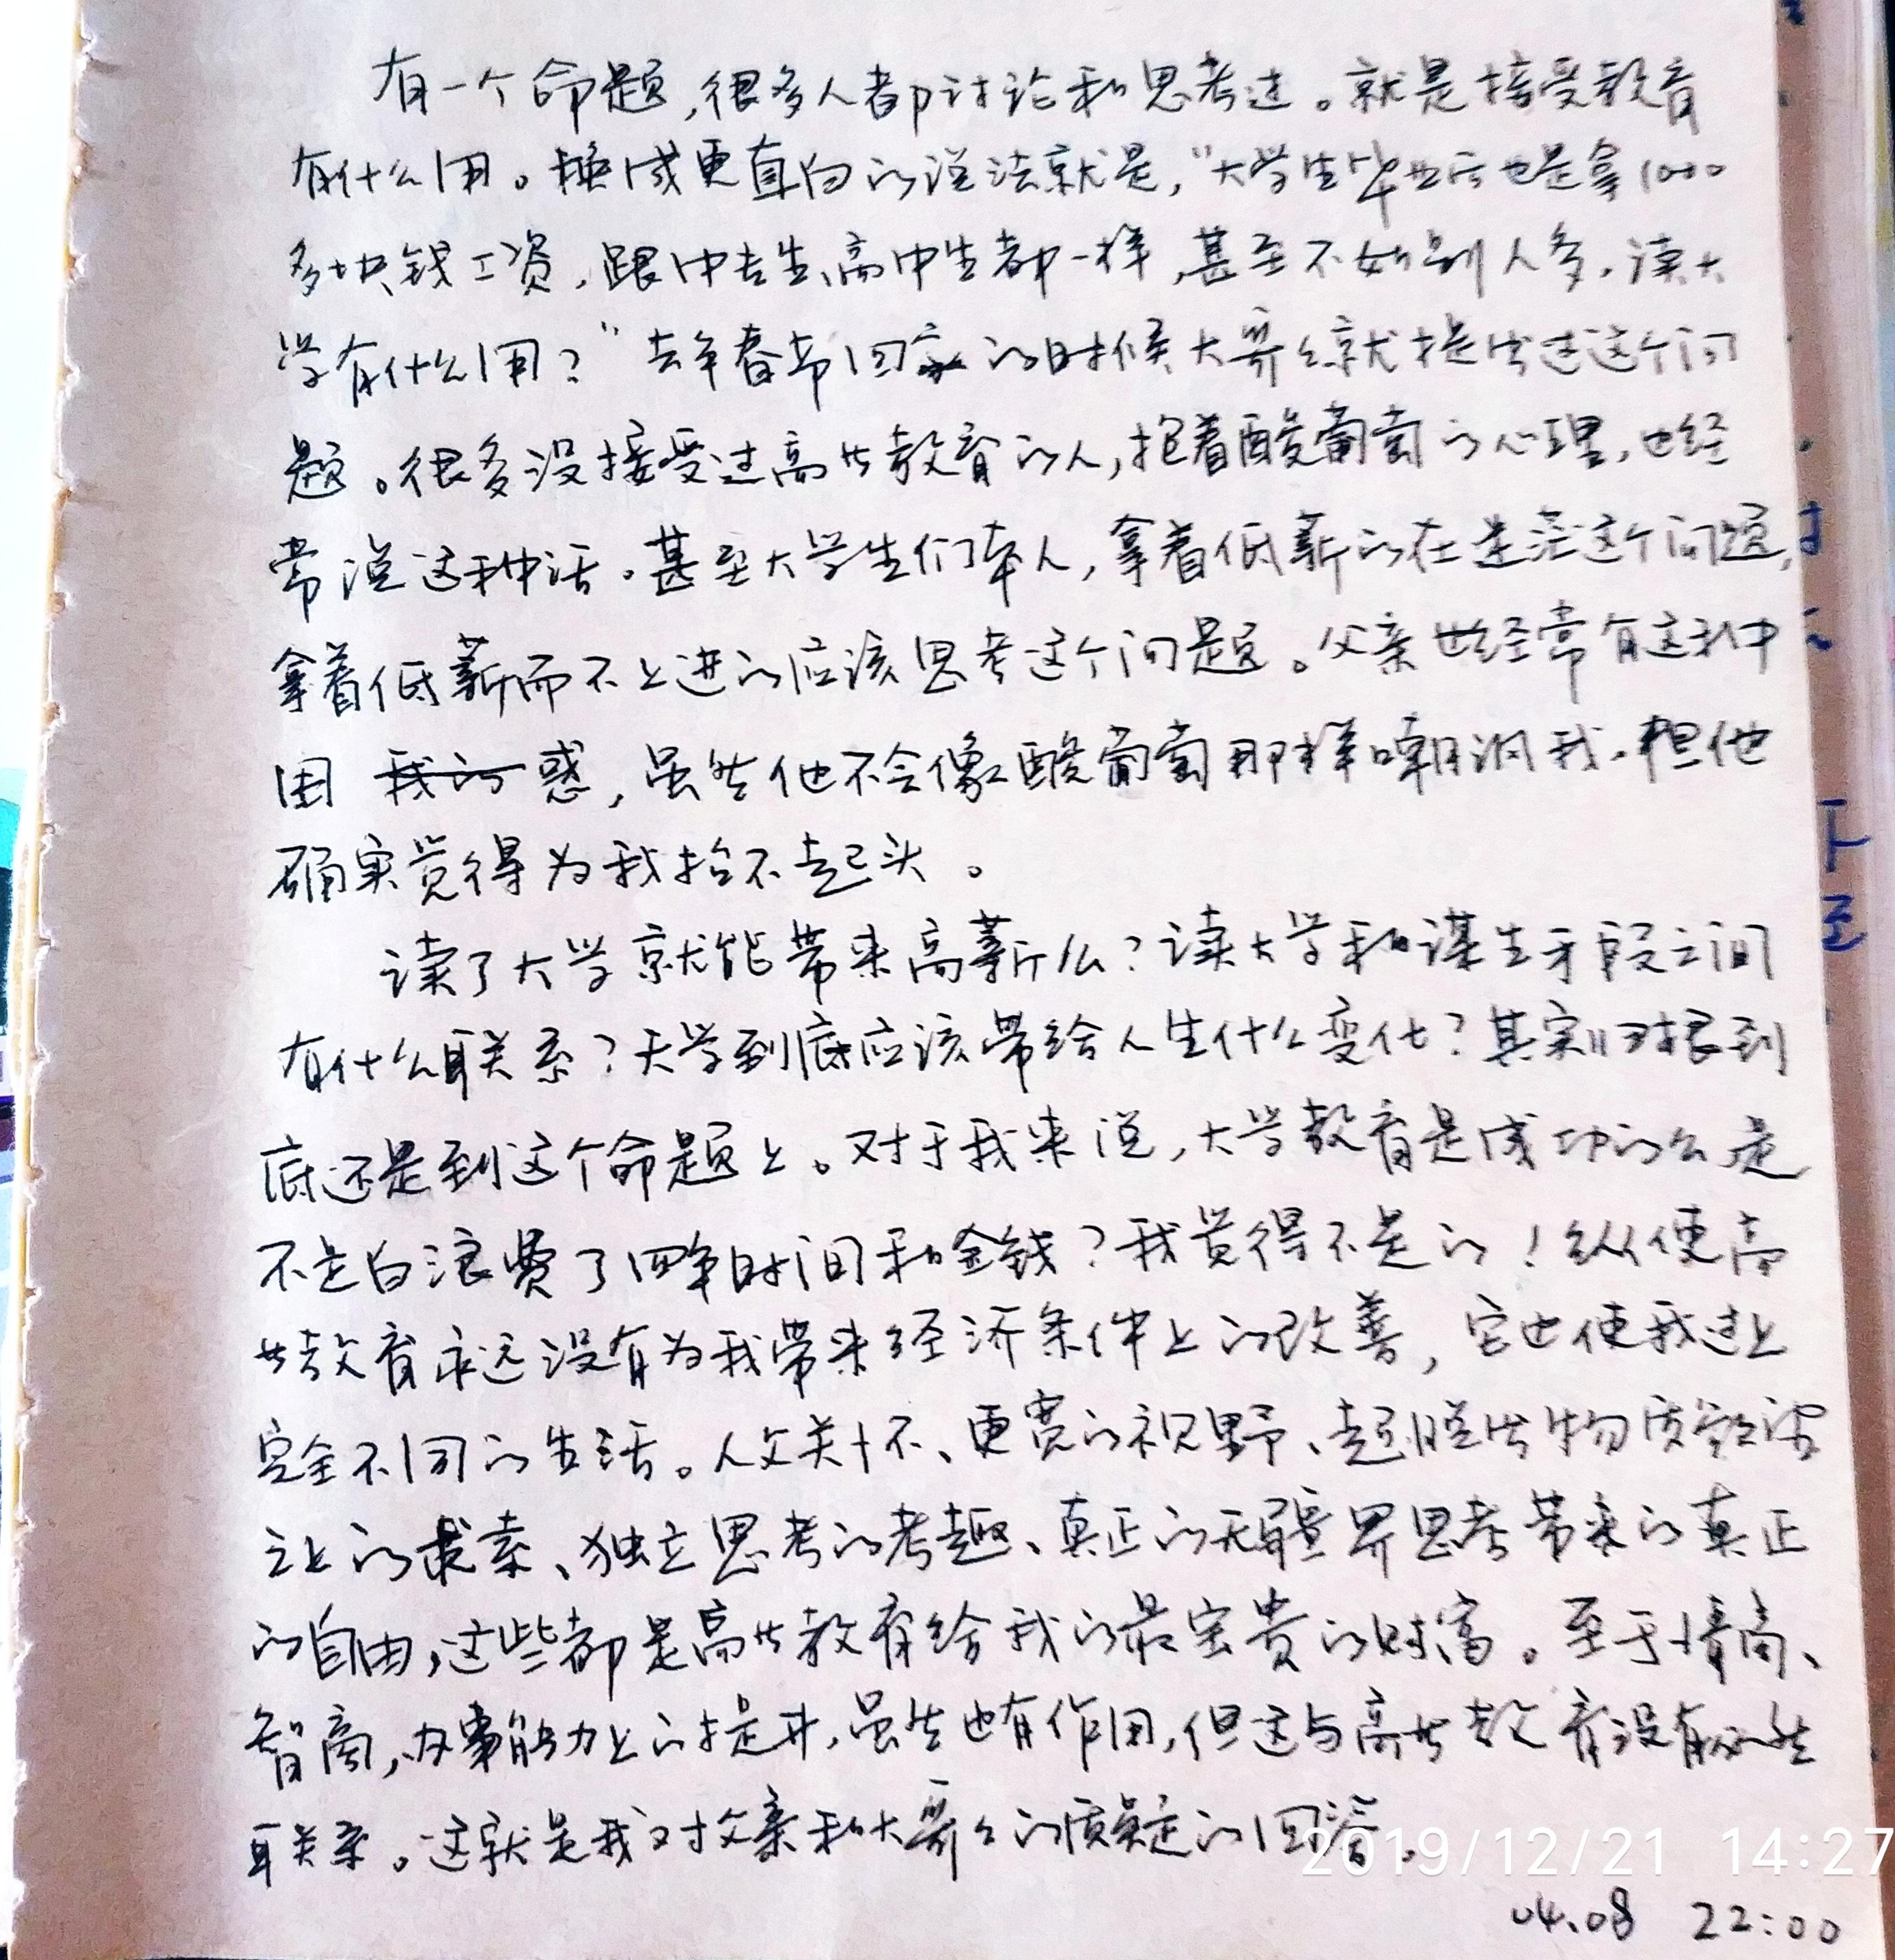 有一个命题,很多人都讨论和思考过。就是接受教育
有什么用。换成更直白的说法就是,“大学生毕业后也是拿1000
多块钱工资,跟中专生、高中生都一样,甚至不如别人多,读大
学有什么用?”去年春节回家的时候大哥哥就提出过这个问
题。很多没接受过高等教育的人,抱着酸葡萄的心理,也经
常说这种话。甚至大学生们本人,拿着低薪的在迷茫这个问题,
拿着低薪而不上进的应该思考这个问题。父亲也经常有这种
困 我的 惑,虽然他不会像酸葡萄那样嘲讽我,但他
确实觉得为我抬不起头。
读了大学就能带来高薪么?读大学和谋生手段之间
有什么联系?大学到底应该带给人生什么变化?其实归根到
底还是到这个命题上。对于我来说,大学教育是成功的么是
不是白浪费了四年时间和金钱?我觉得不是的!纵使高
等教育永远没有为我带来经济条件上的改善,它也使我过上
完全不同的生活。人文关怀、更宽的视野、超脱出物质欲望
之上的求索、独立思考的考趣、真正的无疆界思考带来的真正
的自由,这些都是高等教育给我的最宝贵的财富。至于情商、
智商,办事能力上的提升,虽然也有作用,但这与高等教育没有必然
联系。这就是我对父亲和大哥哥的质疑的回答。
2019/12/21 14:27
04.08 22:00
下
至